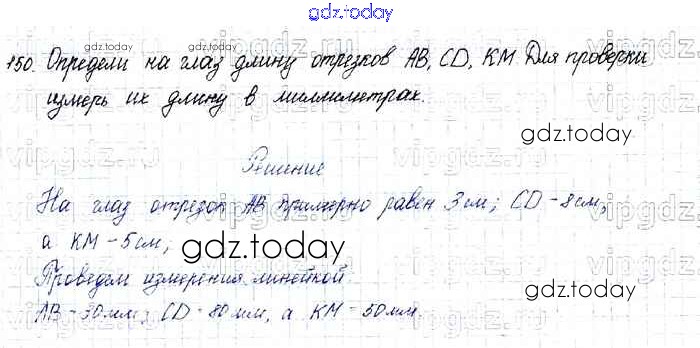 gdz.today
150. Определи на глаз длину отрезков АВ, CD, КМ. Для проверки
измерь их длину в миллиметрах.
gdz.today
Решение
На глаз отрезок АВ примерно равен 3см; CD-8см,
а КМ-5см;
gdz.today
Проведем измерения линейкой.
gdz.today
АВ-30мм; CD-80мм, а КМ-50мм